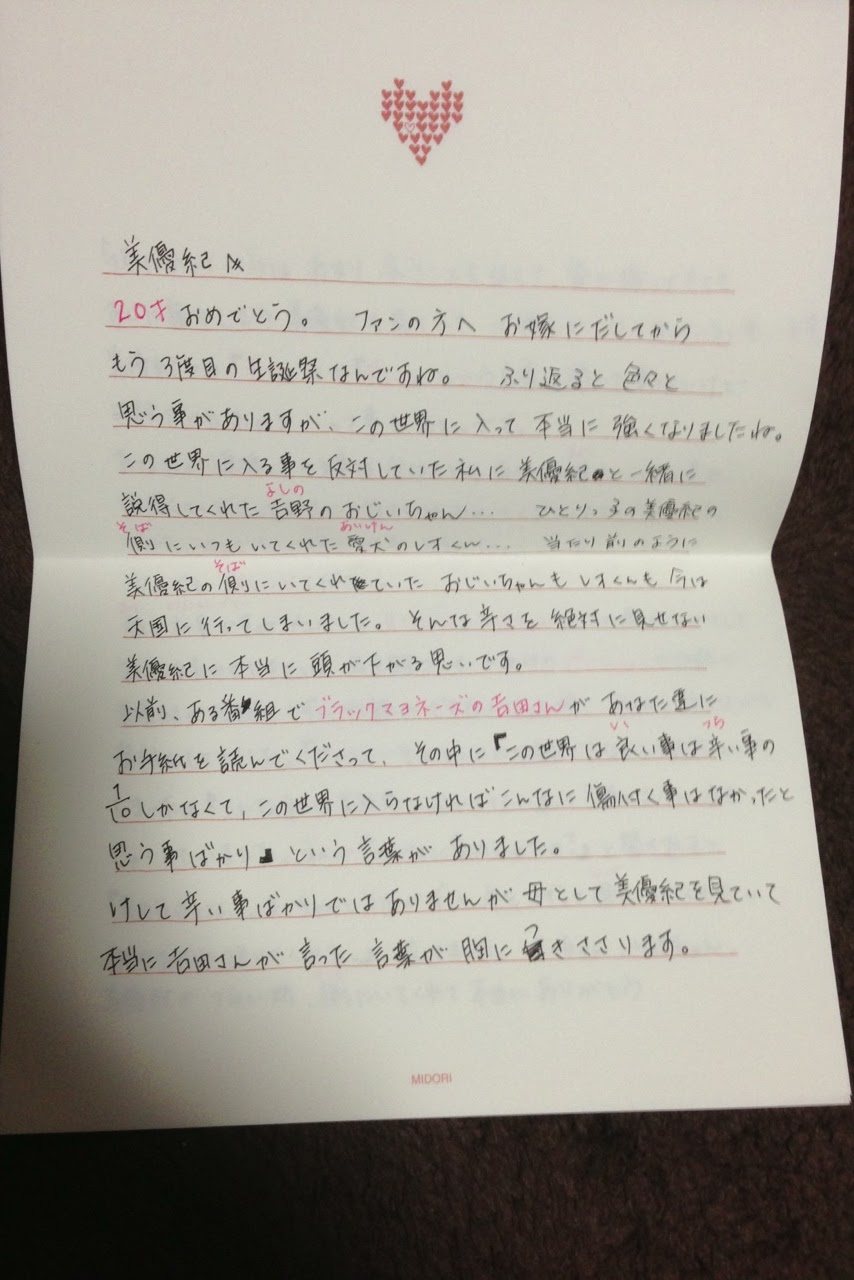 美優紀へ
20才おめでとう。 ファンの方へ お嫁にだしてから
もう3度目の生誕祭なんですね。 ふり返ると 色々と
思う事がありますが、この世界に入って 本当に 強くなりましたね。
この世界に入る事を反対していた私に 美優紀と一緒に
よしの
説得してくれた 吉野のおじいちゃん… ひとりっ子の美優紀の
そば あいけん
側にいつもいてくれた 愛犬のレオくん… 当たり前のように
そば
美優紀の側にいてくれていた おじいちゃんもレオくんも 今は
天国に行ってしまいました。 そんな辛さを 絶対に見せない
美優紀に 本当に 頭が下がる思いです。
以前、ある番組で ブラックマヨネーズの吉田さんが あなた達に
い つら
お手紙を 読んでくださって、 その中に『この世界は 良い事は辛い事の
1/10しかなくて、この世界に入らなければこんなに 傷付く事はなかったと
思う事ばかり』という言葉が ありました。
けして 辛い事ばかりではありませんが 母として美優紀を見ていて
本当に 吉田さんが 言った 言葉が 胸に つきささります。
MIDORI